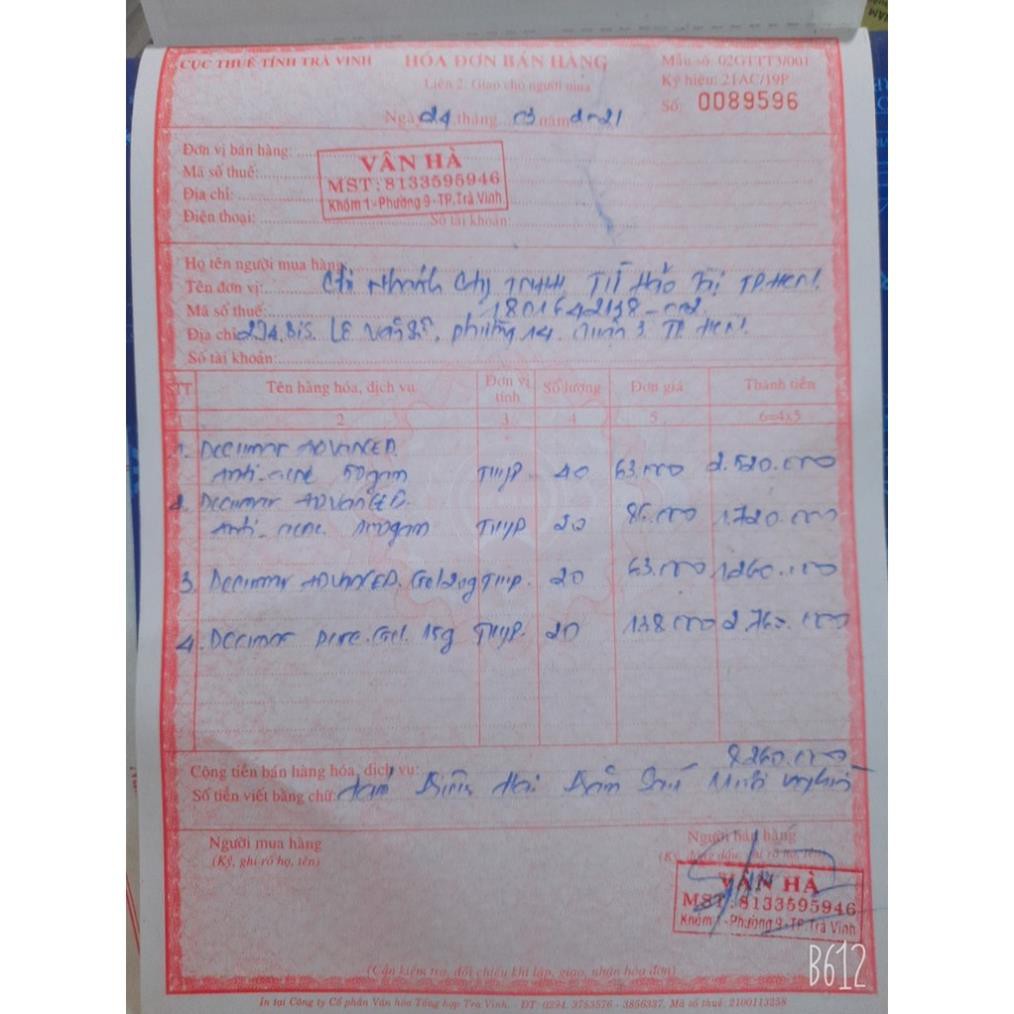 CỤC THUẾ TỈNH TRÀ VINH
HÓA ĐƠN BÁN HÀNG
Liên 2: Giao cho người mua
Mẫu số: 02GTTT3/001
Ký hiệu: 21AC/19P
Số: 0089596
Ngày 24 tháng 03 năm 2021
Đơn vị bán hàng:
Mã số thuế:
Địa chỉ:
Điện thoại: Số tài khoản:
VÂN HÀ
MST: 8133595946
Khóm 1 - Phường 9 - TP. Trà Vinh
Họ tên người mua hàng:
Tên đơn vị: Chi Nhánh Cty TNHH TP.HCM
Mã số thuế: 1801642138-002
Địa chỉ: 234 Bis. Lê Văn Sĩ, phường 14. Quận 3. TP HCM
Số tài khoản:
STT Tên hàng hóa, dịch vụ Đơn vị tính Số lượng Đơn giá Thành tiền
1 2 3 4 5 6=4x5
1. Decumar ADVANCED
Anti-acne 50gam Tuýp 40 63.000 2.520.000
2. Decumar ADVANCED
Anti-acne Tuýp 20 86.000 1.720.000
3. Decumar ADVANCED. Gel 20g Tuýp. 20 63.000 1.260.000
4. Decumar Pure. Gel. 15g Tuýp. 20 138.000 2.760.000
Cộng tiền bán hàng hóa, dịch vụ: 8.260.000
Số tiền viết bằng chữ: Tám Triệu Hai Trăm Sáu Mươi nghìn
Người mua hàng
(Ký, ghi rõ họ, tên)
Người bán hàng
(Ký, đóng dấu, ghi rõ họ, tên)
VÂN HÀ
MST: 8133595946
Khóm 1 - Phường 9 - TP. Trà Vinh
B612
(Cần kiểm tra, đối chiếu khi lập, giao, nhận hóa đơn)
In tại Công ty Cổ phần Văn hóa Tổng hợp Trà Vinh. ĐT: 0294. 3753576 - 3856337. Mã số thuế: 2100113258